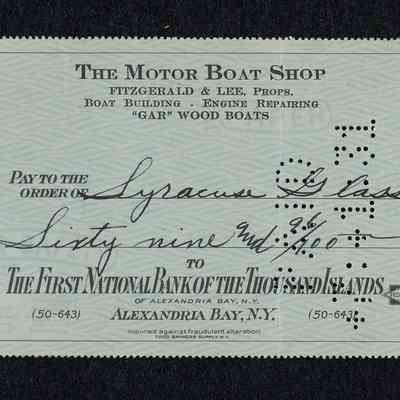 THE MOTOR BOAT SHOP
FITZGERALD & LEE, PROPS.
BOAT BUILDING - ENGINE REPAIRING
"GAR" WOOD BOATS
PAY TO THE
ORDER OF Syracuse Glass
Sixty nine and 96/100
TO
THE FIRST NATIONAL BANK OF THE THOUSAND ISLANDS
OF ALEXANDRIA BAY, N.Y.
(50-643) ALEXANDRIA BAY, N.Y. (50-643)
Insured against fraudulent alteration